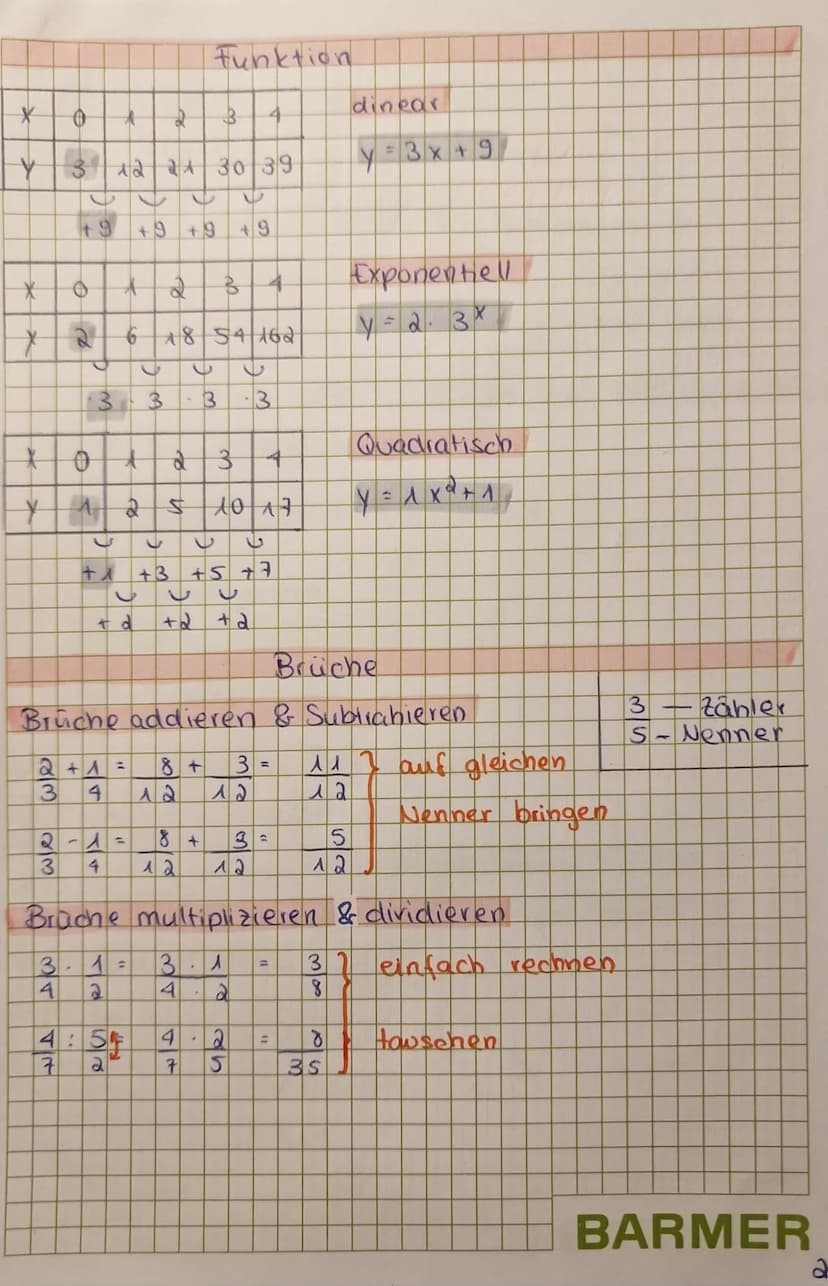 Funktion
x 0 1 2 3 4
y 3 12 21 30 39
+9 +9 +9 +9
linear
y = 3x + 9
x 0 1 2 3 4
y 2 6 18 54 162
·3 ·3 ·3 ·3
Exponentiell
y = 2 · 3^x
x 0 1 2 3 4
y 1 2 5 10 17
+1 +3 +5 +7
+2 +2 +2
Quadratisch
y = 1x² + 1
Brüche
Brüche addieren & Subtrahieren
3 — Zähler
5 – Nenner
2/3 + 1/4 = 8/12 + 3/12 = 11/12
auf gleichen
Nenner bringen
2/3 - 1/4 = 8/12 + 3/12 = 5/12
Brüche multiplizieren & dividieren
3/4 · 1/2 = 3 · 1/4 · 2 = 3/8
einfach rechnen
4/7 : 5/2 4/7 · 2/5 = 8/35
tauschen
BARMER
2